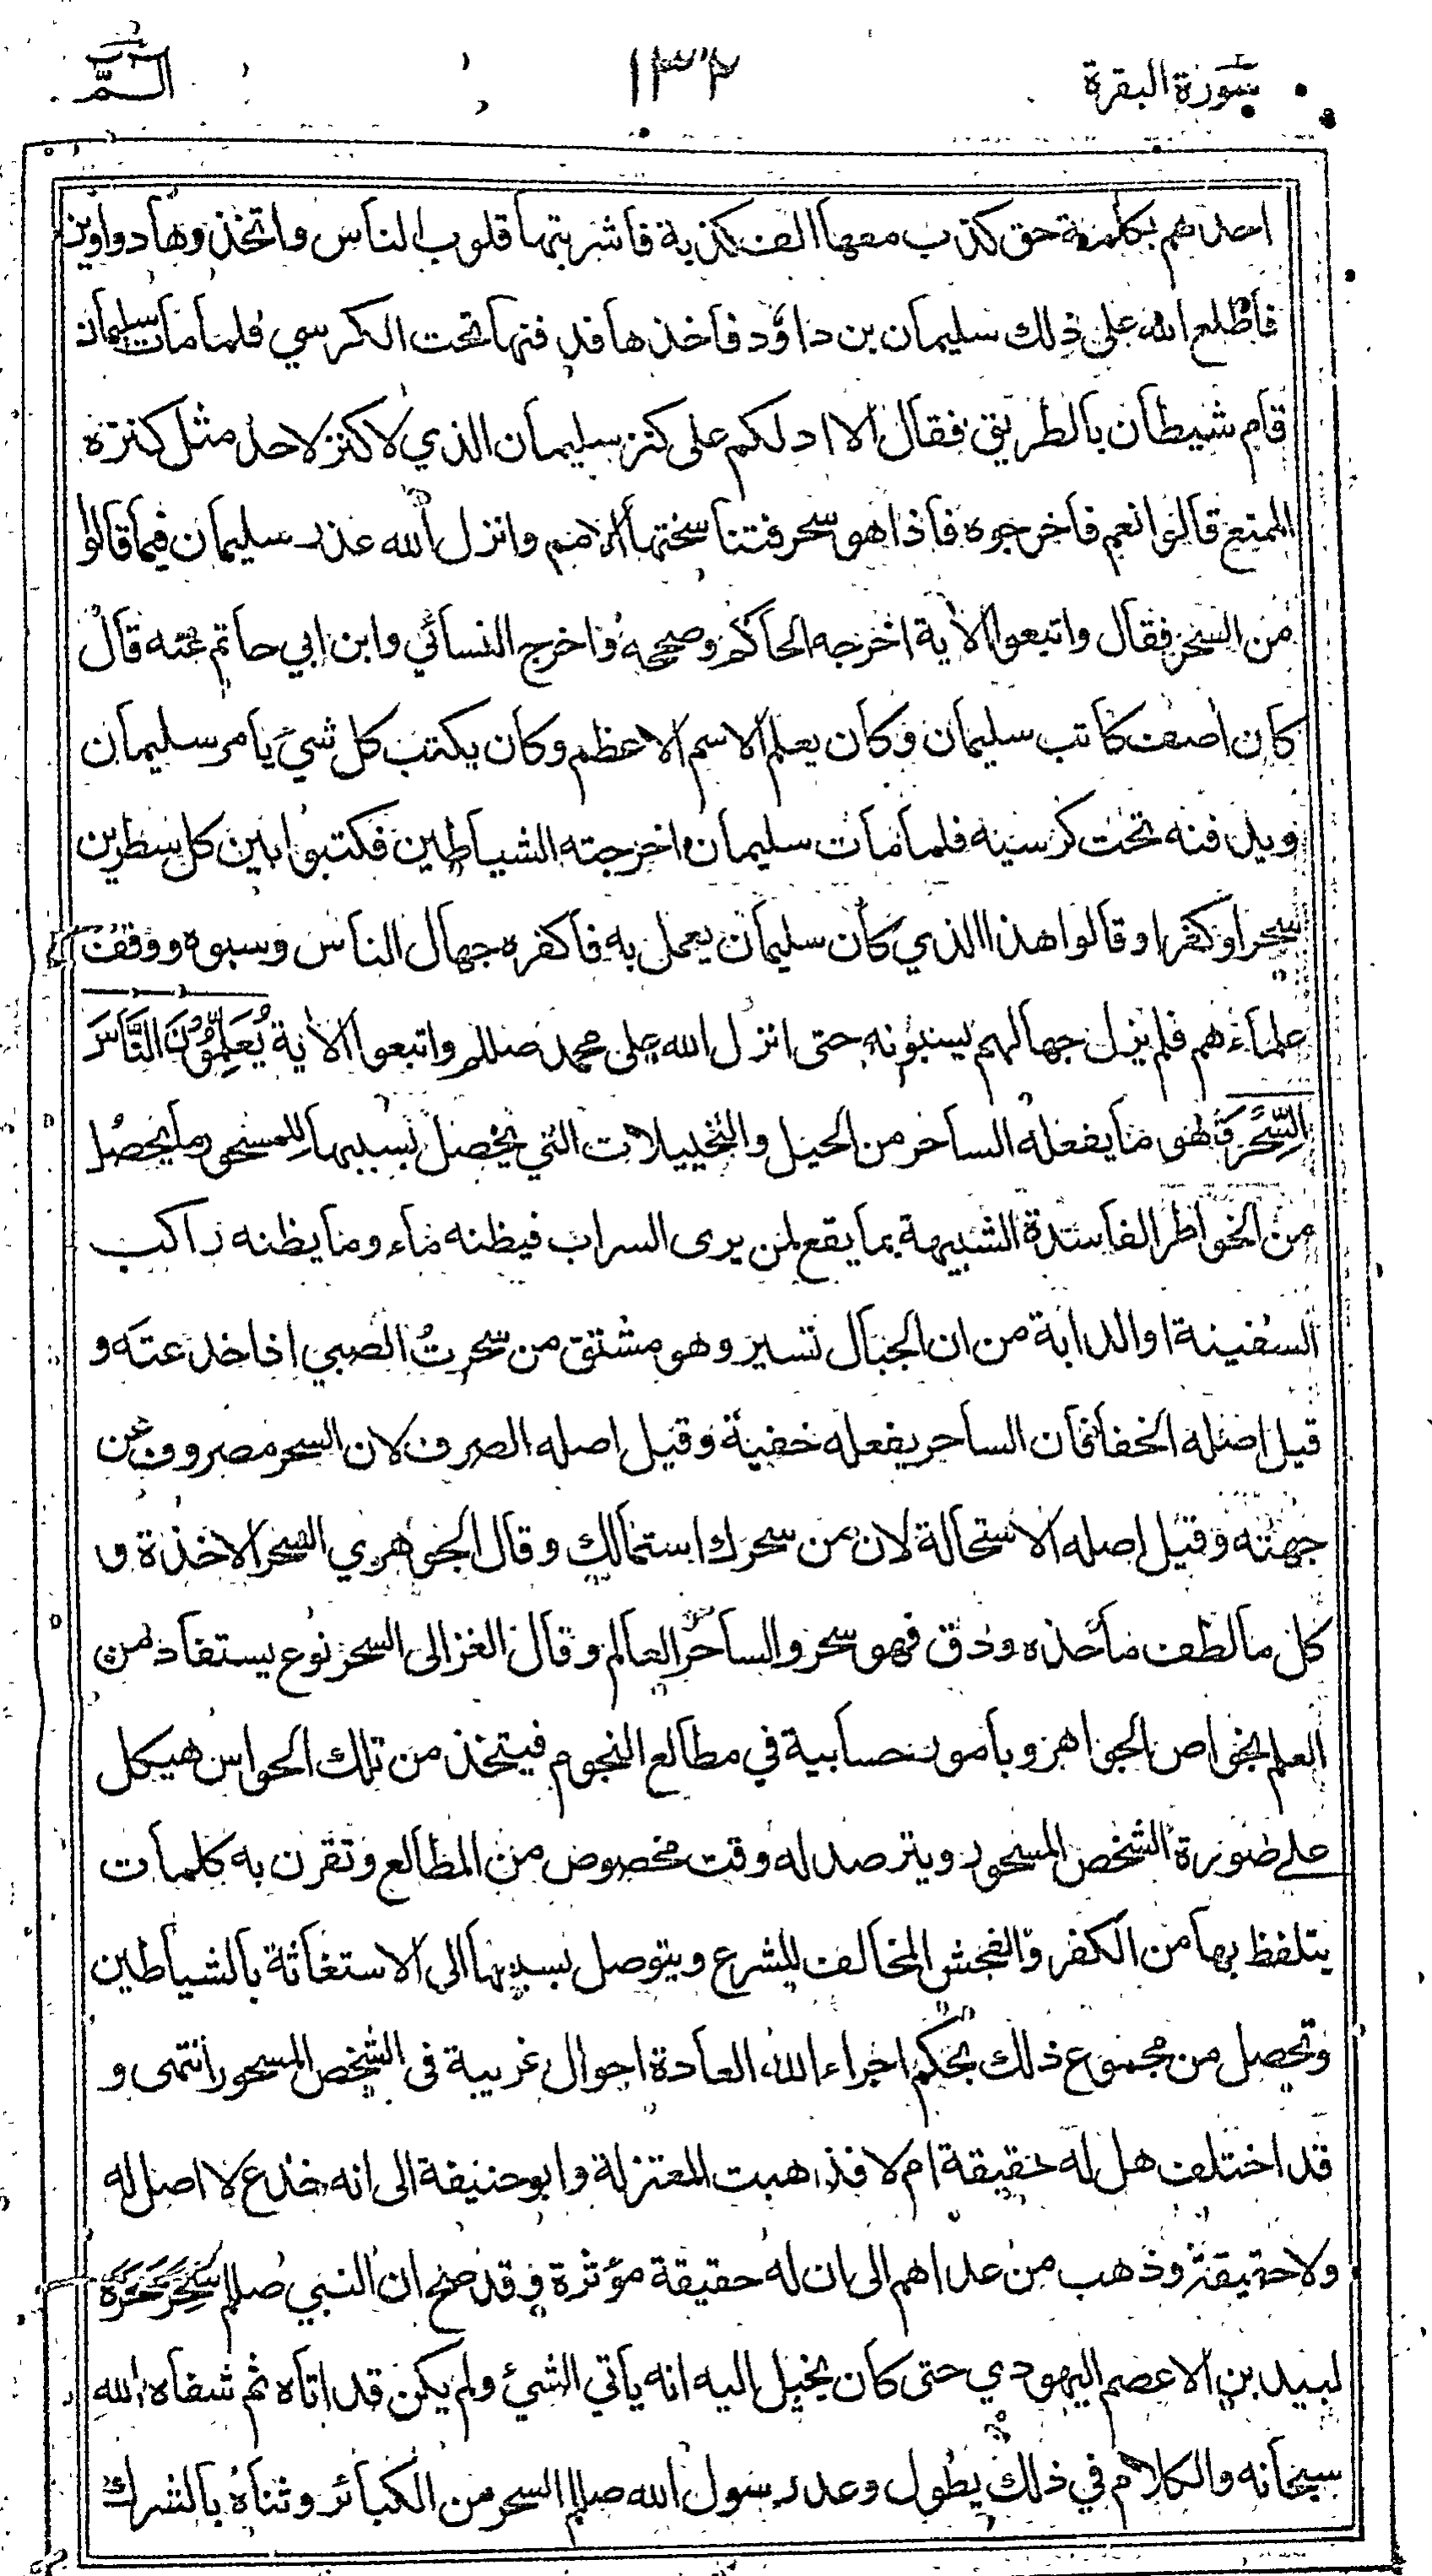 سورة البقرة ١٣٢ الـمّ
احدهم بكلمة حق كذب معها الف كذبة فاشربتها قلوب الناس واتخذوها دواوين
فاطلع الله على ذلك سليمان بن داؤد فاخذها فدفنها تحت الكرسي فلما مات سليمان
قام شيطان بالطريق فقال الا ادلكم على كنز سليمان الذي لا كنز لاحد مثل كنزه
الممنع قالوا نعم فاخرجوه فاذا هو سحر فتناسختها الامم وانزل الله عذر سليمان فيما قالوا
من السحر فقال واتبعوا الأية اخرجه الحاكم وصححه واخرج النسائي وابن ابي حاتم عنه قال
كان اصف كاتب سليمان وكان يعلم الاسم الاعظم وكان يكتب كل شيء يامر سليمان
ويدفنه تحت كرسيه فلما مات سليمان اخرجته الشياطين فكتبوا بين كل سطرين
سحرا وكفرا وقالوا هذا الذي كان سليمان يعمل به فاكفره جهال الناس وسبوه ووقف
علماءهم فلم يزل جهالهم يسبونه حتى انزل الله على محمد صللم واتبعوا الأية يُعَلِّمُوْنَ النَّاسَ
السِّحْرَ فهو ما يفعله الساحر من الحيل والتخييلات التي تحصل بسببها للمسحور ما يحصل
من الخواطر الفاسدة الشبيهة بما يقع لمن يرى السراب فيظنه ماء وما يظنه راكب
السفينة او الدابة من ان الجبال تسير وهو مشتق من سحرتُ الصبي اذا خدعته و
قيل اصله الخفا فان الساحر يفعله خفية وقيل اصله الصرف لان السحر مصروف عن
جهته وقيل اصله الاستحالة لان من سحرك استمالك وقال الجوهري السحر الاخذة و
كل ما لطف مأخذه ودق فهو سحر والساحر العالم وقال الغزالى السحر نوع يستفاد من
العلم بخواص الجواهر وبامور حسابية في مطالع النجوم فيتخذ من تلك الحواس هيكل
على صورة الشخص المسحور ويترصد له وقت مخصوص من المطالع وتقرن به كلمات
يتلفظ بها من الكفر والفحش المخالف للشرع ويتوصل بسببها الى الاستغاثة بالشياطين
وتحصل من مجموع ذلك بحكم اجراء الله العادة احوال غريبة فى الشخص المسحور انتهى و
قد اختلف هل له حقيقة ام لا فذهبت المعتزلة وابو حنيفة الى انه خدع لا اصل له
ولا حقيقة وذهب من عداهم الى ان له حقيقة مؤثرة وقد صح ان النبي صللم سُحِرَ سَحَرَهُ
لبيد بن الاعصم اليهودي حتى كان يخيل اليه انه يأتي الشيء ولم يكن قد اتاه ثم شفاه الله
سبحانه والكلام في ذلك يطول وعد رسول الله صللم السحر من الكبائر وثناه بالشرك